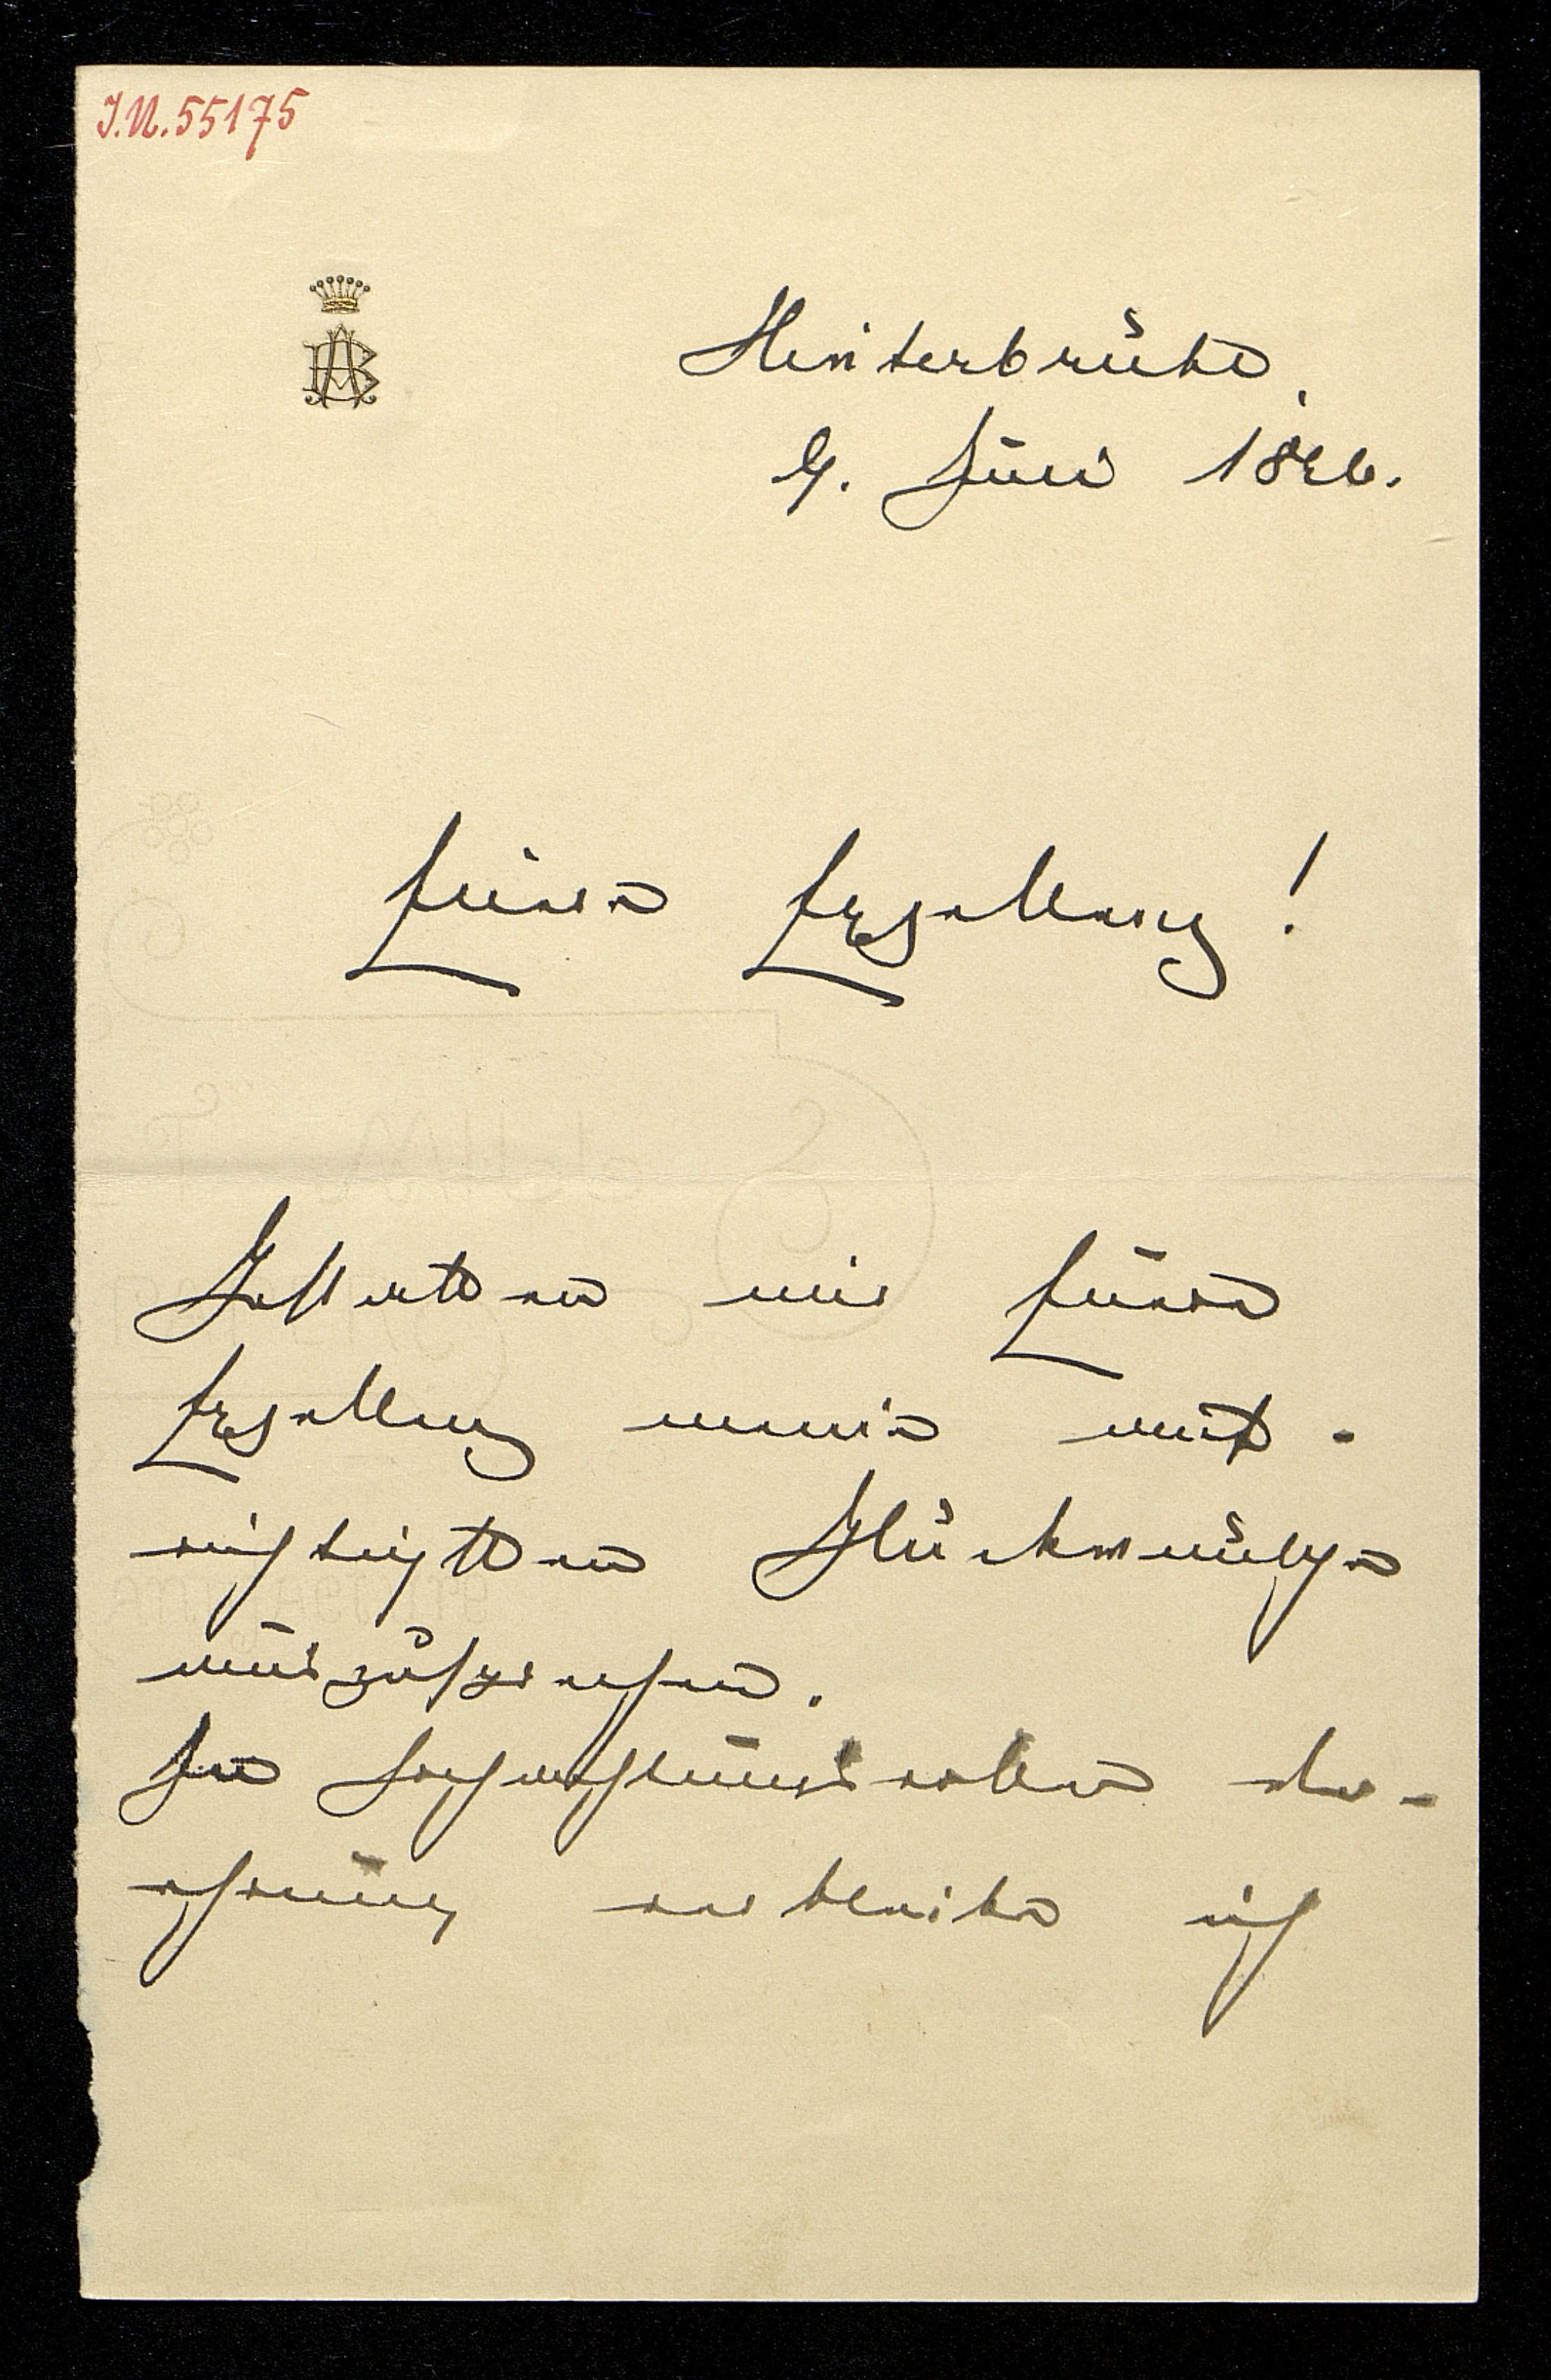 I.N. 55175
Hinterbrühl,
9. Juni 1896.
Euere Excellenz!
Gestatten mir Euere
Excellenz meine auf-
richtigsten Glückwünsche
auszusprechen.
In hochachtungsvoller Er-
gebung verbleibe ich